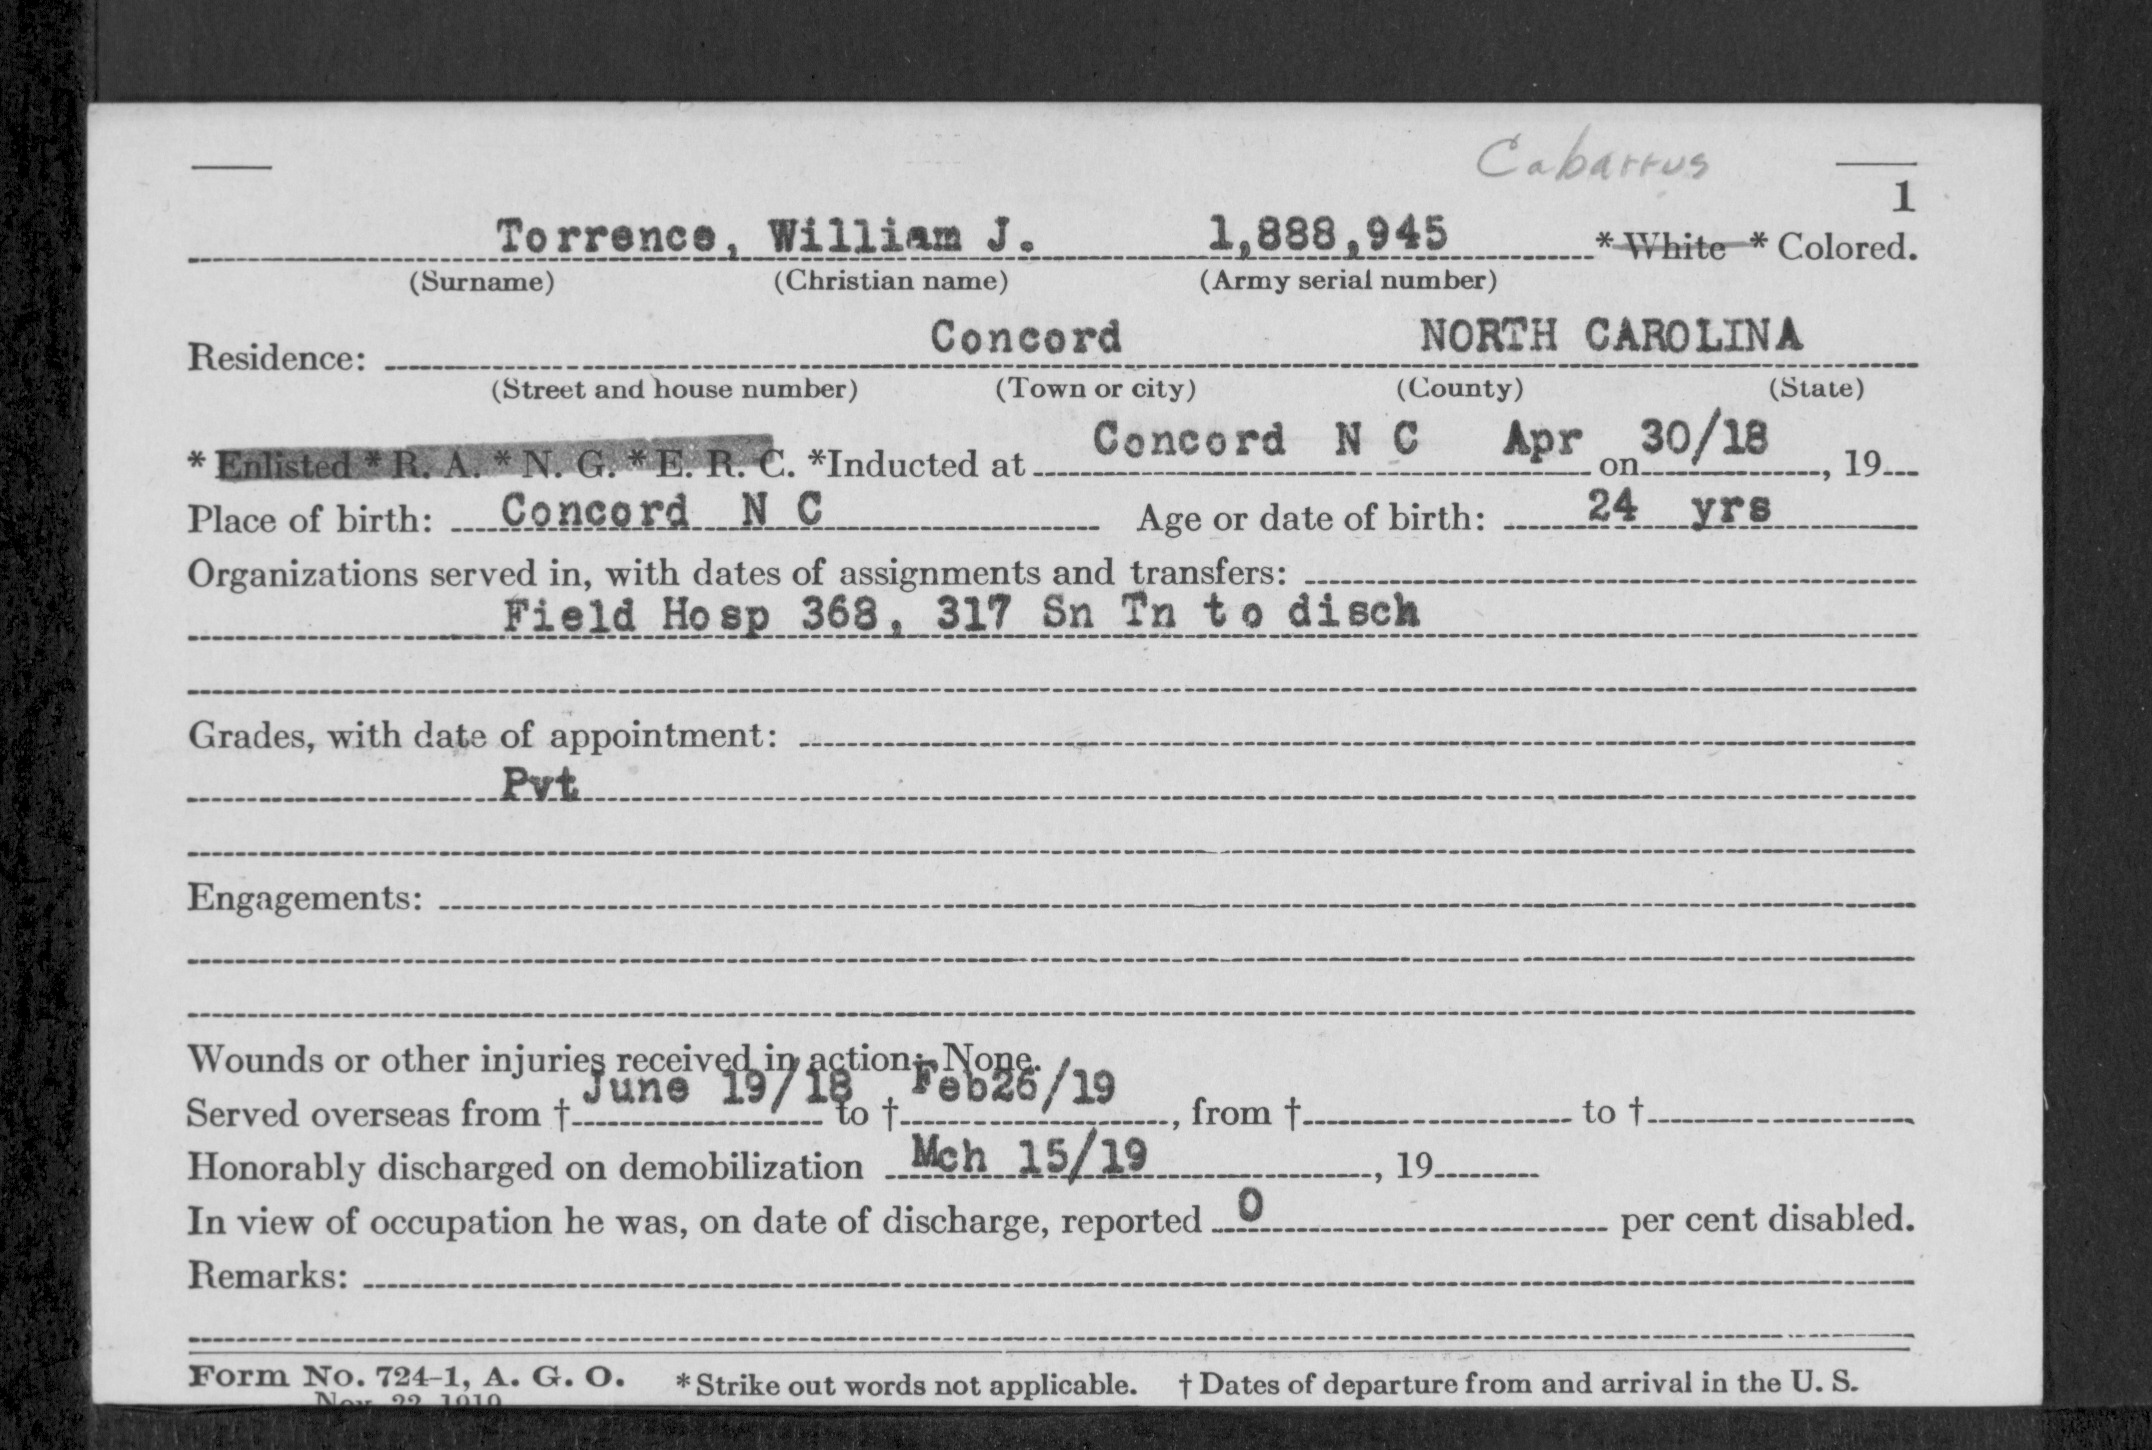 Cabarrus
1
Torrence, William J. 1,888,945 * White * Colored.
(Surname) (Christian name) (Army serial number)
Residence: Concord NORTH CAROLINA
(Street and house number) (Town or city) (County) (State)
* Enlisted * R. A. * N. G. * E. R. C. *Inducted at Concord N C Apr on 30/18, 19
Place of birth: Concord N C Age or date of birth: 24 yrs
Organizations served in, with dates of assignments and transfers:
Field Hosp 368, 317 Sn Tn to disch
Grades, with date of appointment:
Pvt
Engagements:
Wounds or other injuries received in action: None.
Served overseas from † June 19/18 to † Feb26/19, from † to †
Honorably discharged on demobilization Mch 15/19, 19
In view of occupation he was, on date of discharge, reported 0 per cent disabled.
Remarks:
Form No. 724-1, A. G. O. * Strike out words not applicable. † Dates of departure from and arrival in the U. S.
Nov. 22, 1919